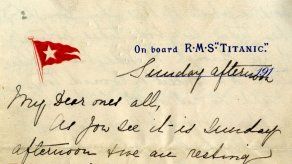 On board R·M·S "TITANIC."
Sunday afternoon
My Dear ones all,
As you see it is Sunday
afternoon & we are resting